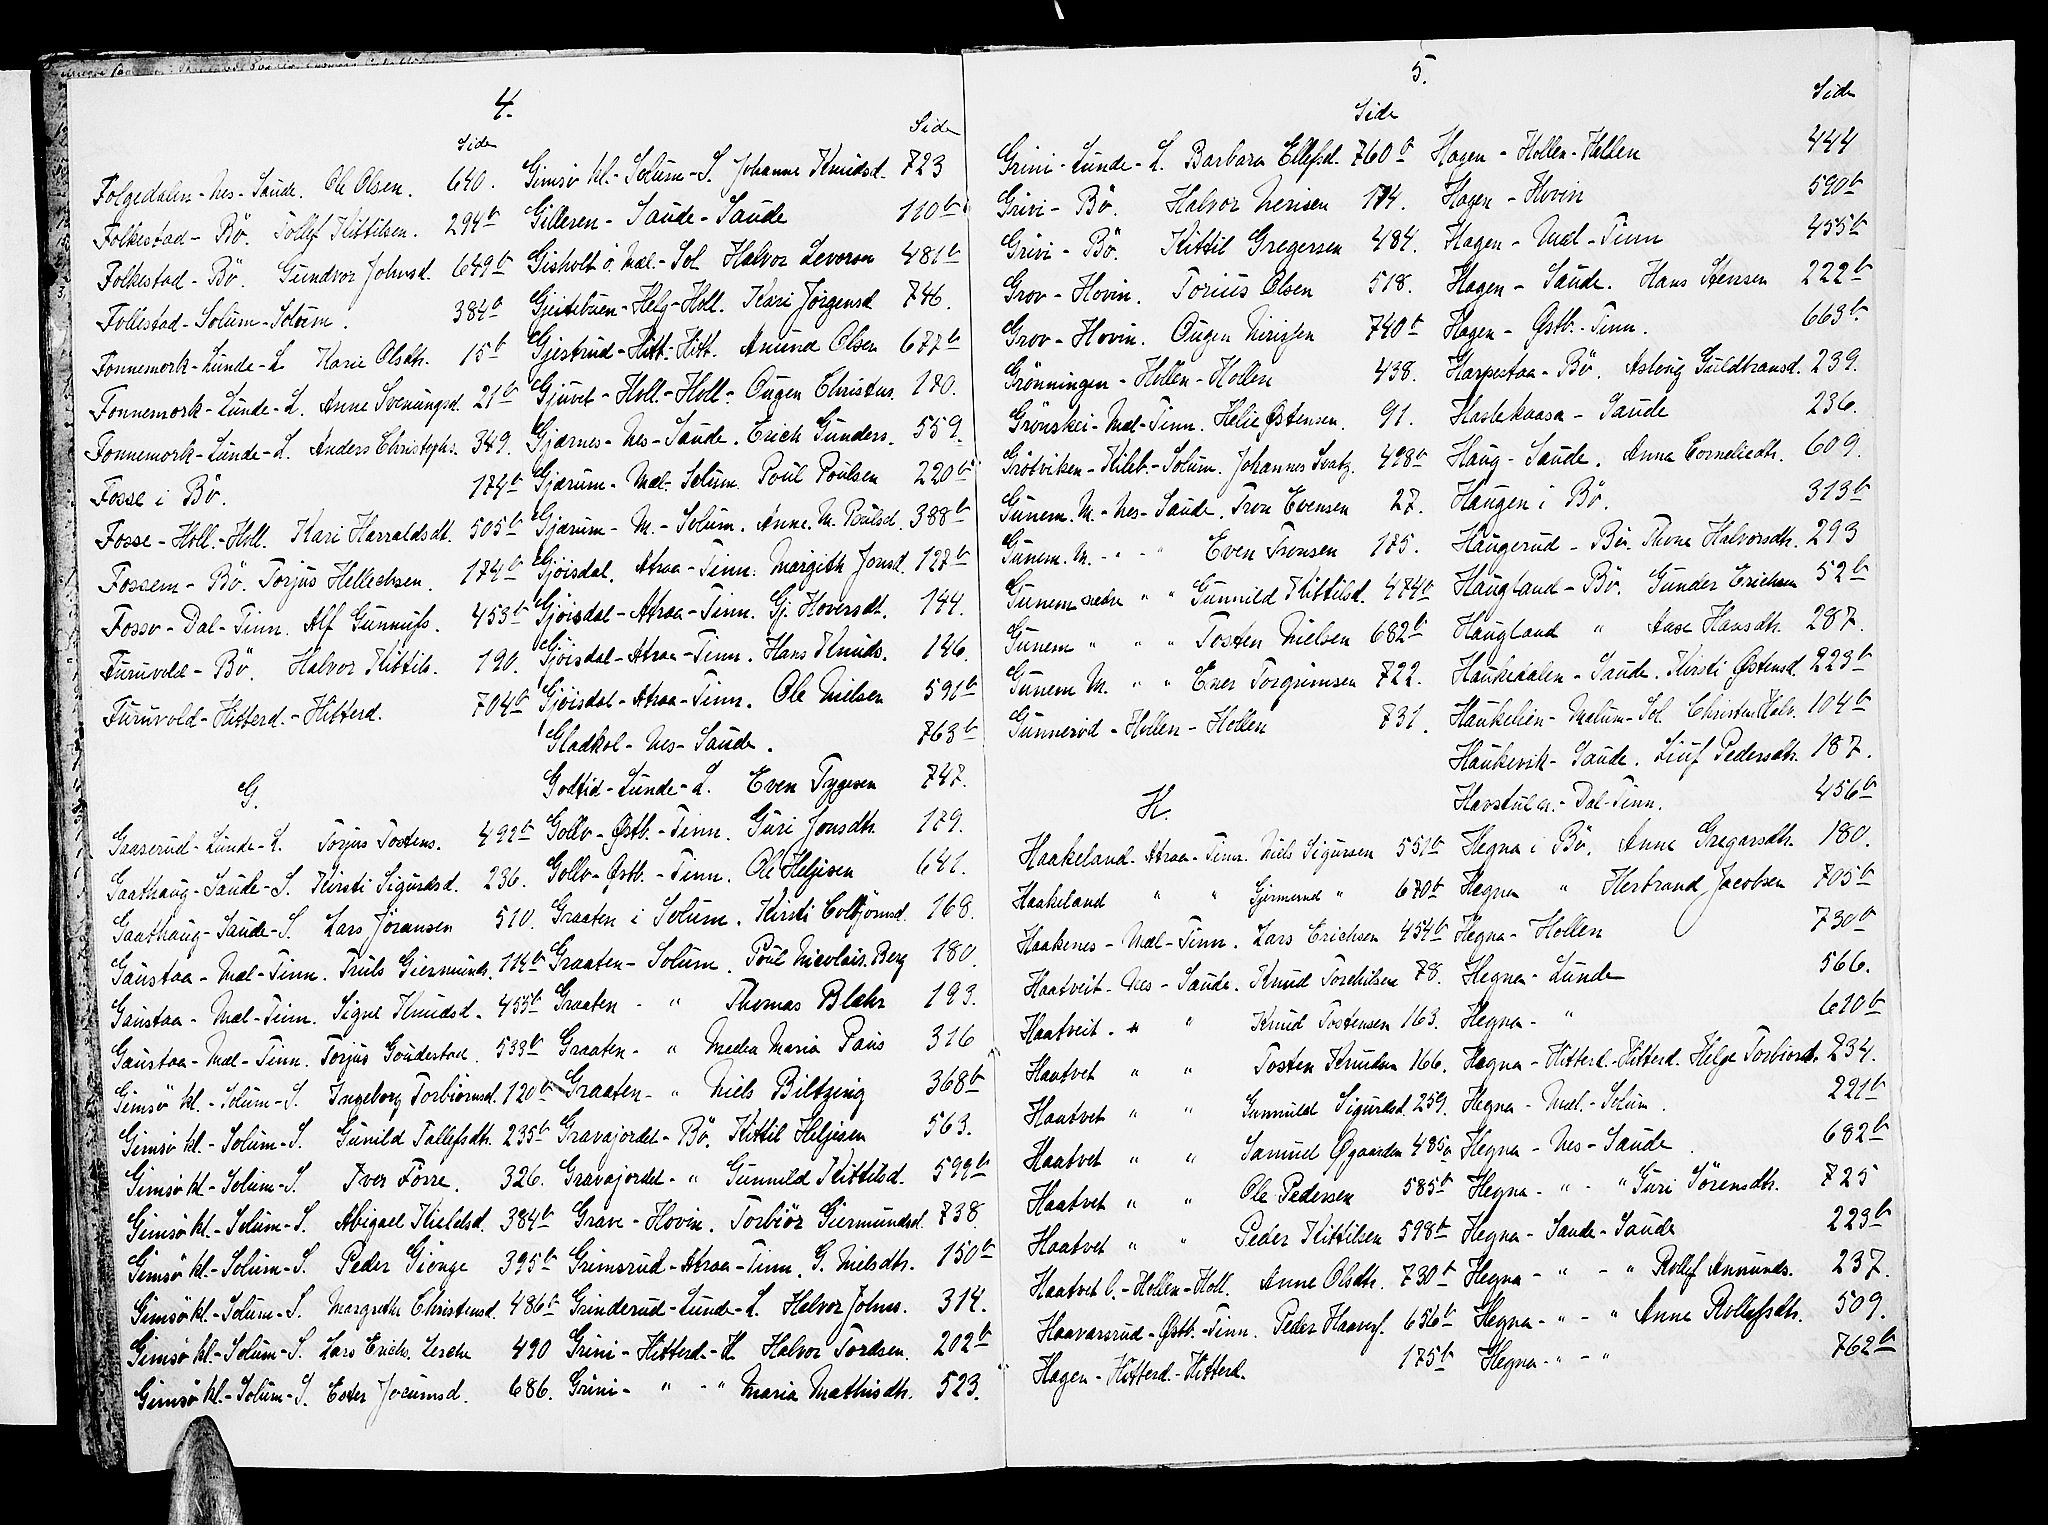 4.
Side
Folgedalen - Nes - Saude. Ole Olsen. 640.
Folkestad - Bö. Tollef Kittilsen. 294b
Folkestad - Bö. Gundvor Johnsd. 649b
Follestad - Solum - Solum. 384b
Fonnemork - Lunde - L. Karie Olsdtr. 15b
Fonnemork - Lunde - L. Anne Svenungsd. 21b
Fonnemork - Lunde - L. Anders Christophs. 349.
Fosse i Bö. 174b
Fosse - Holl. - Holl. Kari Harraldsdt. 505b
Fossem - Bö. Torjus Hellechsen. 174b
Fosso - Dal - Tinn. Alf Gunnufs. 453b
Furuvold - Bö. Halvor Kittils. 190.
Furuvold - Hitterd. - Hitterd. 704b
G.
Gaaserud - Lunde - L. Torjus Tostens. 492b
Gaathaug - Saude - S. Kirsti Sigurdsd. 236.
Gaathaug - Saude - S. Lars Jöransen 510.
Gaustaa - Mæl - Tinn. Truls Giermunds. 114b
Gaustaa - Mæl - Tinn. Signe Knudsd. 455b
Gaustaa - Mæl - Tinn. Torjus Goudestad. 533b
Gimsö kl. - Solum - S. Ingeborg Torbiörnsd. 120b
Gimsö kl. - Solum - S. Gunild Tallefsdtr. 235b
Gimsö kl. - Solum - S. Iver Forre. 326.
Gimsö kl. - Solum - S. Abigael Kieldsd. 384b
Gimsö kl. - Solum - S. Peder Giönge 395b
Gimsö kl. - Solum - S. Margrethe Christensd. 486b
Gimsö kl. - Solum - S. Lars Erichs. Lerche 490
Gimsö kl. - Solum - S. Ester Jocumsd. 686.
Side
Gimsö kl. - Solum - S. Johanne Knudsd. 723
Gilleren - Saude - Saude 110b
Gisholt ö. Mæl. - Sol Halvor Levorsen 481b
Gjeitebuen - Helg - Holl. Kari Jörgensd 746.
Gjestrud - Hitt. - Hitt. Amund Olsen 677b
Gjuvet - Holl. - Holl. Ougen Christens. 170.
Gjærnes - Nes - Saude. Erich Gunders. 559.
Gjærum - Mæl. Solum. Poul Poulsen 220b
Gjærum - M. - Solum. Anne M. Poulsd. 388b
Gjöisdal. Atraa - Tinn. Margith Jonsd. 127b
Gjöisdal - Atraa - Tinn. Gj. Hoversdt. 144.
Gjöisdal - Atraa - Tinn. Hans Knuds. 146.
Gjöisdal - Atraa - Tinn. Ole Nielsen 591b
Gladkol - Nes - Saude. 763b
Godtid - Lunde - L. Even Tygesen 747.
Gollv - Østb. - Tinn. Guri Jonsdtr. 179.
Gollv - Østb. - Tinn. Ole Heljesen 641.
Graaten i Solum. Kirsti Colbjörnsd. 168.
Graaten - Solum. Poul Nicolais. Berg 180.
Graaten - " Thomas Blehr 193.
Graaten - " Medea Maria Paus 316
Graaten - " Niels Biltzing 368b
Gravajordet - Bö. Kittil Heljesen 563.
Gravajordet - " Gunnild Kittilsd. 599b
Grave - Hovin. Torbiör Giermundsd. 738.
Grimsrud - Atraa - Tinn. G. Nielsdtr. 150b
Grinderud - Lunde - L. Halvor Johns. 314.
Grini - Hitterd. - H. Halvor Tordsen. 202b
Grini - " - " Maria Mathisdtr. 523.
5.
Side
Grini - Lunde - L. Barbara Ellefsd. 760b
Grivi - Bö. Halvor Nerisen 174.
Grivi - Bö. Kittil Gregersen 484.
Grov - Hovin. Torius Olsen 518.
Grov - Hovin. Ougen Nirisen 740b
Grönningen - Hollen - Hollen 438.
Grönskei - Mæl - Tinn. Helie Østensen. 91.
Grötviken - Kileb. - Solum. Johannes Svatz. 498b
Gunem. M. - Nes - Saude. Tron Evensen 27.
Gunem. M. - " - " Even Tronsen 175.
Gunem nedre " " Gunnild Kittilsd. 474b
Gunem " " " Tosten Nielsen 682b
Gunem M. " " Ener Torgrimsen 722.
Gunneröd - Hollen - Hollen 731.
H.
Haakeland - Atraa - Tinn. Niels Sigursen 551b
Haakeland " " Gjermund " 670b
Haakenes - Mæl - Tinn. Lars Erichsen 454b
Haatveit - Nes - Saude. Knud Torchilsen 78.
Haatveit - " " Knud Tostensen 163.
Haatvet " " Tosten Knudsen 166.
Haatvet " " Gunnuld Sigurdsd. 259.
Haatvet " " Samuel Øgaarden 485a
Haatvet " " Ole Pedersen 585b
Haatvet " " Peder Kittilsen 598b
Haatvet C. - Hollen - Holl. Anne Olsdtr. 730b
Haavarsrud - Østb. - Tinn. Peder Haavers. 656b
Hagen - Hitterd. - Hitterd. 175b
Side
Hagen - Hollen - Hollen 444
Hagen - Hovin 590b
Hagen - Mæl - Tinn 455b
Hagen - Saude. Hans Stensen 222b
Hagen - Østb. - Tinn. 663b
Harpestaa - Bö. Asloug Guldbransd. 239.
Haslekaasa - Saude 236.
Haug - Saude. Anne Corneliedtr. 609.
Haugen i Bö. 313b
Haugerud - Bö. Thone Halvorsdtr. 293
Haugland - Bö. Gunder Erichsen 52b
Haugland " Aase Hansdtr. 287.
Haukedalen - Saude. Kirsti Østensd. 223b
Haukelien - Melum - Sol. Christen Halv. 104b
Haukevik - Saude. Liuf Pedersdtr. 187.
Havstul a. - Dal - Tinn. 456b
Hegna i Bö. Anne Gregarsdtr. 180.
Hegna " Herbrand Jacobsen 705b
Hegna - Hollen 730b
Hegna - Lunde 566.
Hegna - " 610b
Hegna - Hitterd. - Hitterd. Helge Torbiörns. 234.
Hegna - Mæl. - Solum. 221b
Hegna - Nes - Saude. 682b
Hegna - " - " Guri Sörensdtr. 725
Hegna - Saude - Saude 223b
Hegna - " - " Rollef Amunds. 237.
Hegna - " - " Anne Rollefsdtr. 509.
Hegna - " - " 762b